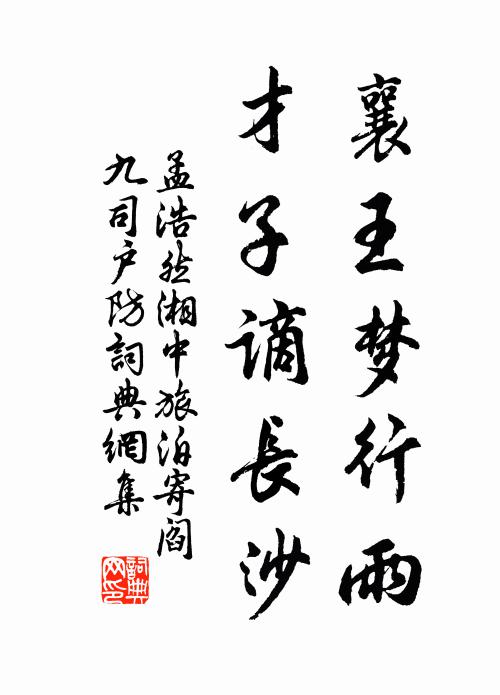 襄王梦行雨
才子谪長沙
孟浩然湘中旅泊寄阎
九司户防詞典網集
詞典
网印